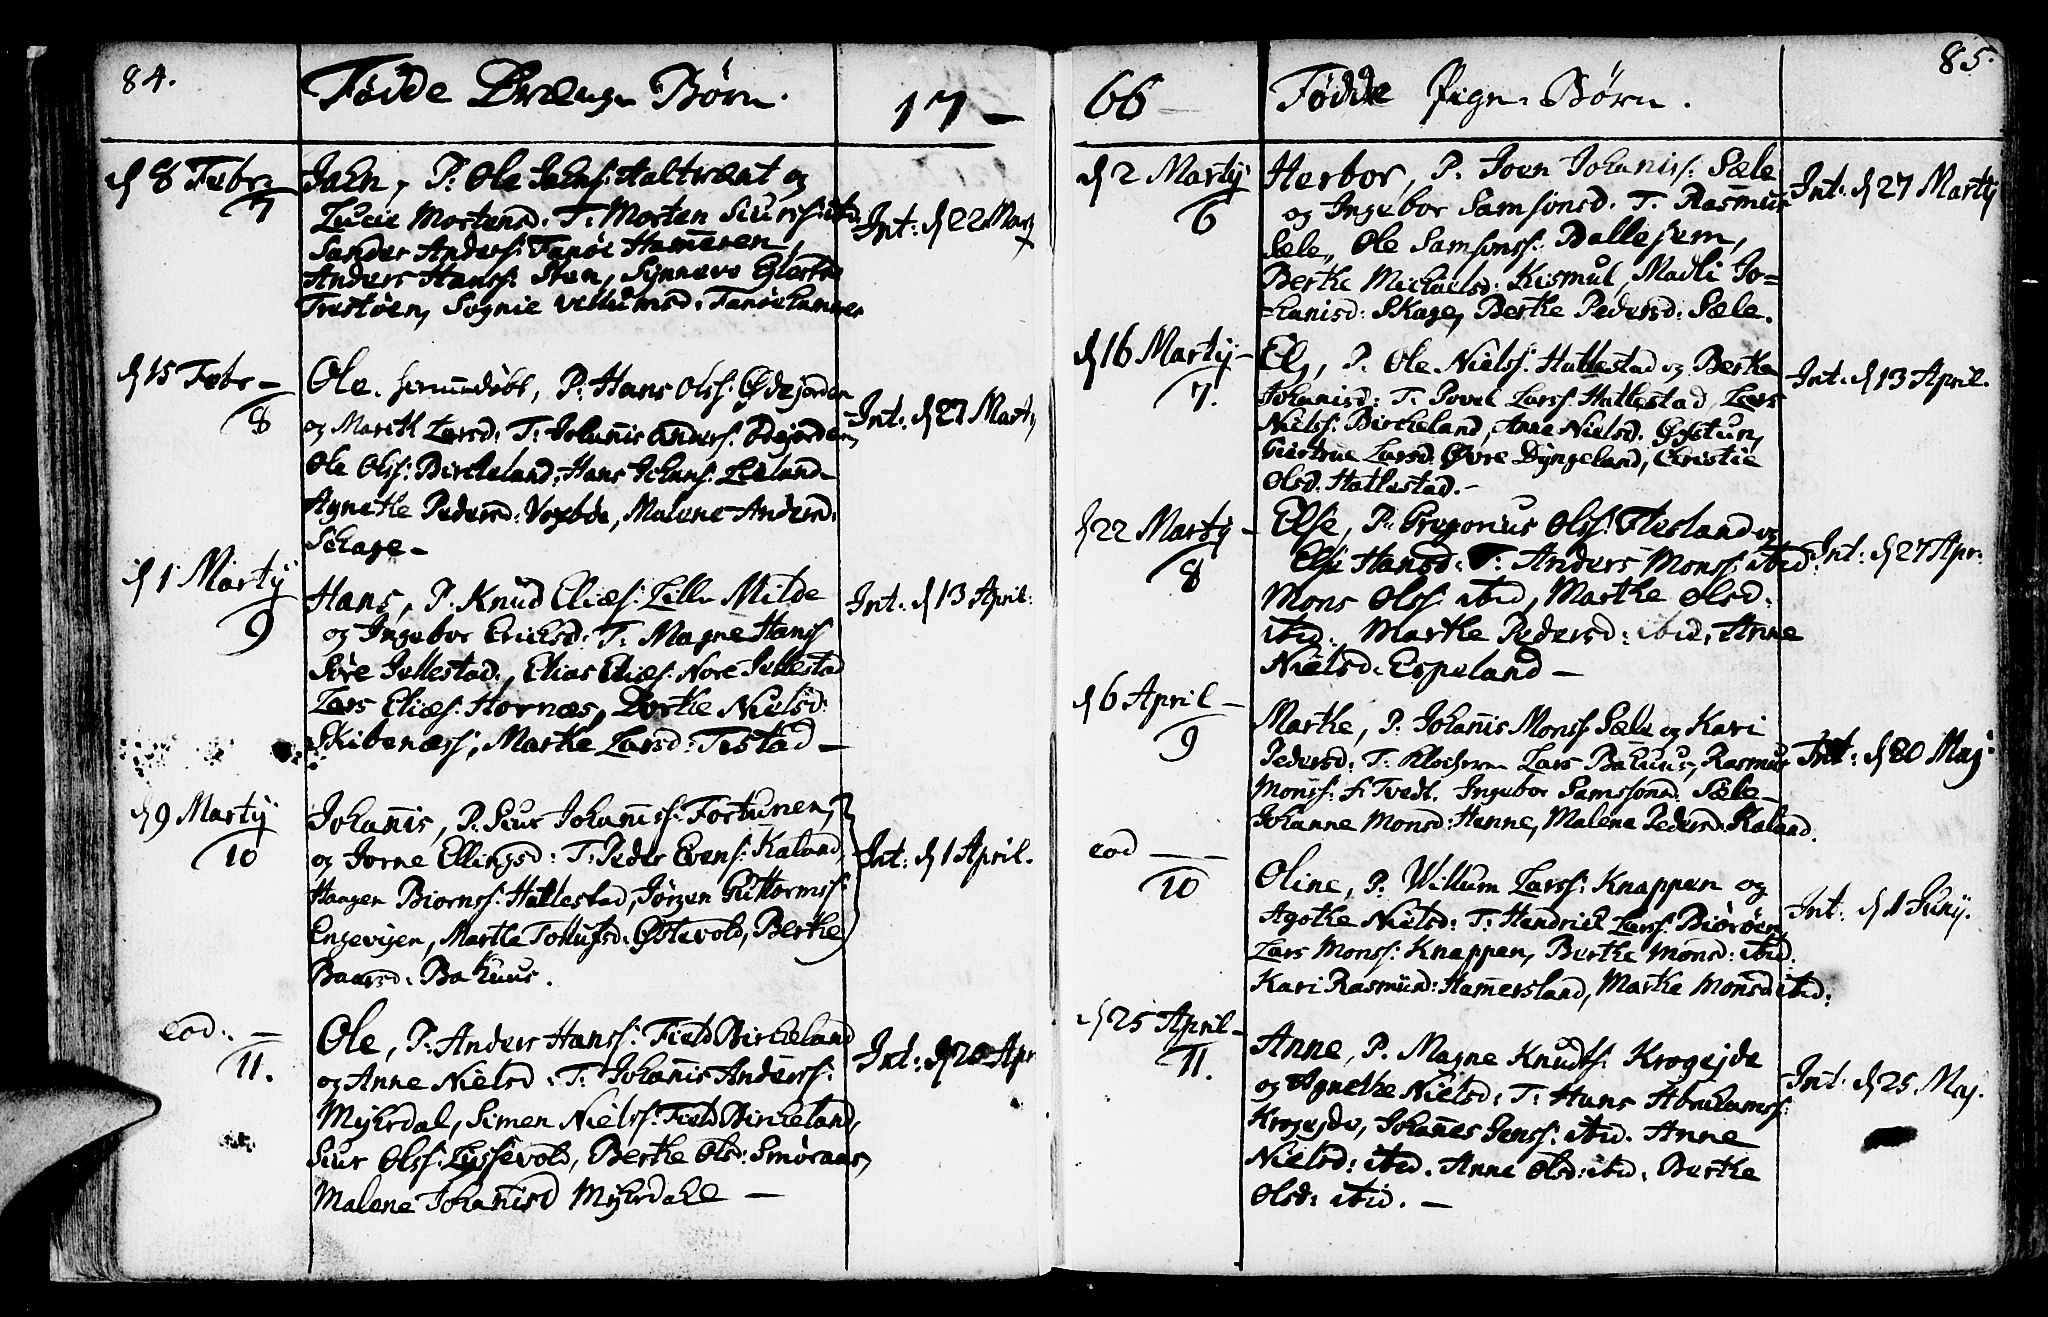 84.
Fødde Drænge Børn.
17
d 8 Febr:
7
Jahn, P: Ole Jahns: Haltræet og
Lucie Mortensd: T: Morten Siurss: ibid
Sander Anders: Fanöe Ham̄eren,
Anders Hanss: Steen, Synneve
Trestöen, Sognie Villumsd: Fanöehammer
Int: d 22 Marty
d 15 Febr
8
Ole. hiem̄edøbt, P: Hans Olss: Ødejorden
og Marith Larsd: T: Johan̄is Anders: Ødejorden,
Ole Olss: Bircheland, Hans Johans: Lieland
Agnethe Pedersd: Voxböe, Malene Andersd:
Schage
Int: d 27 Marty
d 1 Marty
9
Hans, P: Knud Eliæs: Lille Milde
og Ingebor Ericksd: T: Magne Hanss
Söre Jullestad, Elias Eliæs: Nore Jullestad
Lars Eliæs: Hornæs, Dorthe Nielsd:
Skibenæss, Marthe Larsd: Tistad
Int: d 13 April:
d 9 Marty
10
Johan̄is, P: Siur Johan̄iss: Fortunen,
og Jorne Ellingsd: T: Peder Evens: Kaland,
Haagen Biornss: Hatlestad, Jörgen Guttormss:
Engevigen, Martha Tollufsd: Østevold, Berthe
Baarsd: Bahuus.
Int: d 1 April.
eod:
11.
Ole, P: Anders Hanss: Field Bircheland
og Anne Nielsd: T: Johan̄is Anderss:
Myhrdal, Simen Nielss: Field Bircheland,
Siur Olss: Lyssevold, Berthe Olsd: Smöraas,
Malene Johan̄isd Myhrdahl
Int: d 20 Apr
66
Fødde Pige Børn.
85.
d 2 Marty
6
Herbor, P. Joen Johaniss: Sæle
og Ingebor Samsonsd. T. Rasmus
Sæle, Ole Samsonss: Ballesem,
Berthe Michaelsd: Kismul, Madli Jo=
=hanisd: Skage, Berthe Pedersd: Sæle.
Int: d 27 Marty
d 16 Marty
7.
Eli, P. Ole Nielss: Hatlestad og Berthe
Johanisd: T: Povel Larss: Hatlestad, Lars
Nielss: Bircheland, Anne Nielsd. Øfstun,
Giertrue Larsd: Øvre Dyngeland, Christie
Olsd: Hatlestad.
Int: d 13 April.
d 22 Marty
8
Else, P. Gregorius Olss: Flesland og
Else Hansd: T: Anders Monss: ibid:
Mons Olss: ibid, Marthe Olsd:
ibid. Marthe Pedersd: ibid, Anne
Nielsd: Espeland
Int: d 27 Apr:
d 6 April
9
Marthe, P. Johan̄is Monss Sæle og Kari
Pedersd: T: Klocheren Lars Bahuus, Rasmus
Monss: Tvedt. Ingebor Samssond: Sæle
Johanne Monsd: Hanne, Malena Pedersd: Kaland.
Int: d 20 Maj
eod
10
Oline, P. Willum Larss: Knappen og
Agothe Nielsd: T: Hendrich Larss: Biöröen,
Lars Monss: Knappen, Berthe Monsd: ibid.
Kari Rasmusd: Ham̄ersland, Marthe Monsd ibid:
Int: d 1 Juny.
d 25 April
11.
Anne, P. Magne Knuds: Krogejde
og Agnethe Nielsd: T: Hans Abrahamss:
Krogejde, Johan̄es Jenss: ibid. Anne
Nielsd: ibid. Anne Olsd: ibid, Berthe
Olsd: ibid.
Int: d 25 Maj.